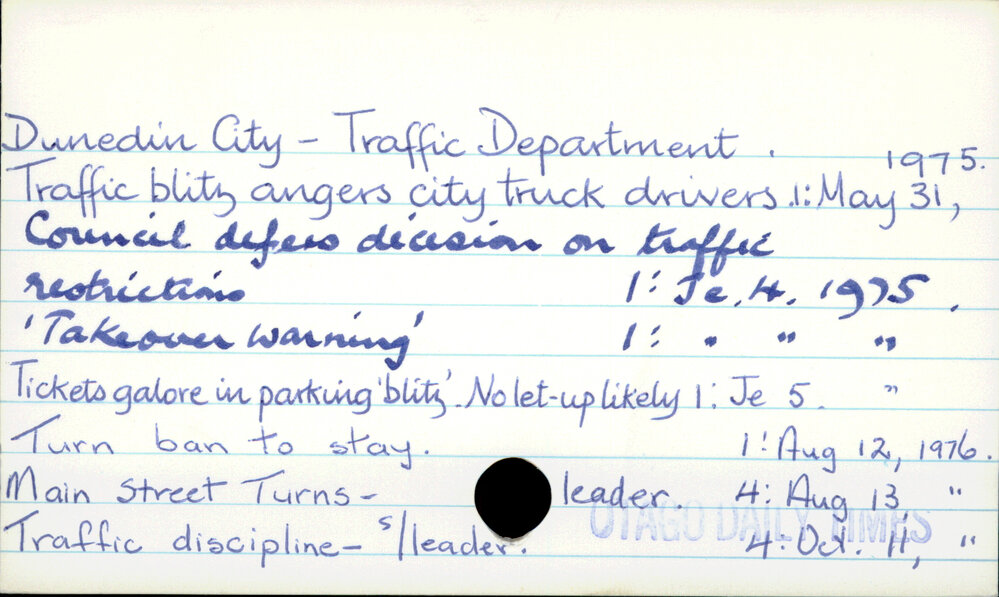 Dunedin City - Traffic Department.
Traffic blitz angers city truck drivers. 1: May 31, 1975.
Council defers decision on traffic
restrictions 1: Je. 4. 1975.
'Takeover warning' 1: " " "
Tickets galore in parking 'blitz'. No let-up likely 1: Je 5. "
Turn ban to stay. 1: Aug 12, 1976.
Main Street Turns - leader. 4: Aug 13, "
Traffic discipline - s/leader. 4: Oct. 11, "
OTAGO DAILY TIMES